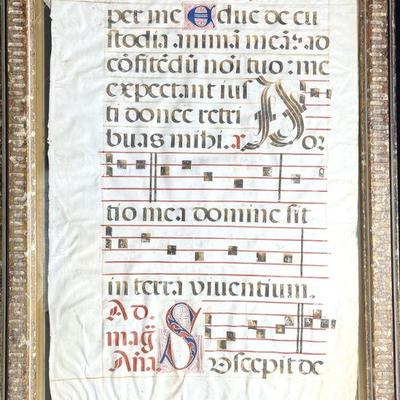 per me Educ de cu
stodia animā meā: ad
cōfitēdū nōi tuo: me
expectant ius
ti donec retri
buas mihi. a. Por
tio mea domine sit
in terra viuentium.
Ad.
mag̃
Aña. Suscepit de